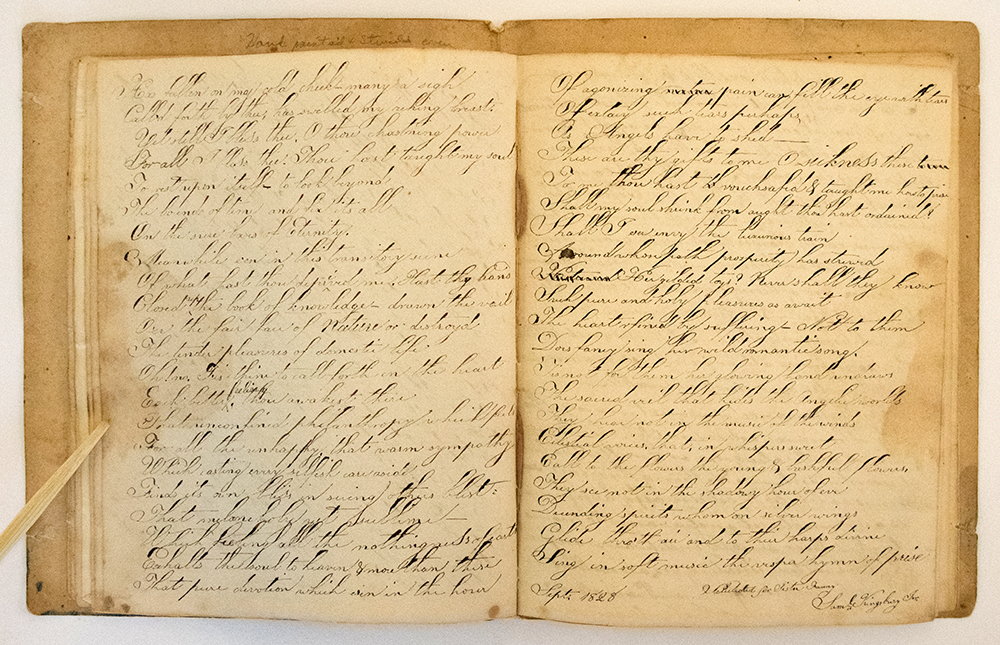 Hand painted
Has fallen on my cold cheek many a sigh
Called forth by thee, has swelled my aching breast.
Yet still I bless thee, O thou chastning power
For all I bless thee. Thou hast taught my soul
To rest upon itself to look beyond
The bounds of time and fix its all
On the sure bars of Eternity!
Meanwhile even in this transitory scene
Of what hast thou deprived me. Hast thy hand
Closed the book of knowledge drawn the veil
O'er the fair face of Nature or destroyd
The tender pleasures of domestic life
Oh! no. Tis thine to call forth in the heart
Each better feeling thou awakest there
That unconfined philanthropy which feels
For all the unhappy, that warm sympathy
Which casting every selfish care aside
Finds its own bliss in seeing others blest:
That melancholy yet sublime
Which feeling all the nothingness of earth
Exalts the soul to heaven & more than these
That pure devotion which even in the hour
Of agonizing pain can fill the eyes with tears
Of extacy such tears perhaps
As Angels have to shed
These are thy gifts to me O sickness these
To me thou hast vouchsafed & taught me how to prize
Shall my soul shrink from aught thou hast ordained?
Shall I ever envy the luxurious train
Around whose path prosperity has strewed
Her gilded toys? Never shall they know
Such pure and holy pleasures as await
The heart refined by suffering Not to them
Does fancy sing her wild romantic song.
Tis not for them her glowing hand undraws
The sacred veil that hides the angelic worlds
They hear not in the music of the winds
Celestial voices that, in whispers sweet
Call to the flowers the young & bashful flowers.
They see not in the shadowy hour of eve
Descending spirits whom on silver wings
Glide thro' the air and to their harps divine
Sing in soft music the vesper hymn of praise
Sept. 1828
for Sister
Saml. Kingsbury Jr